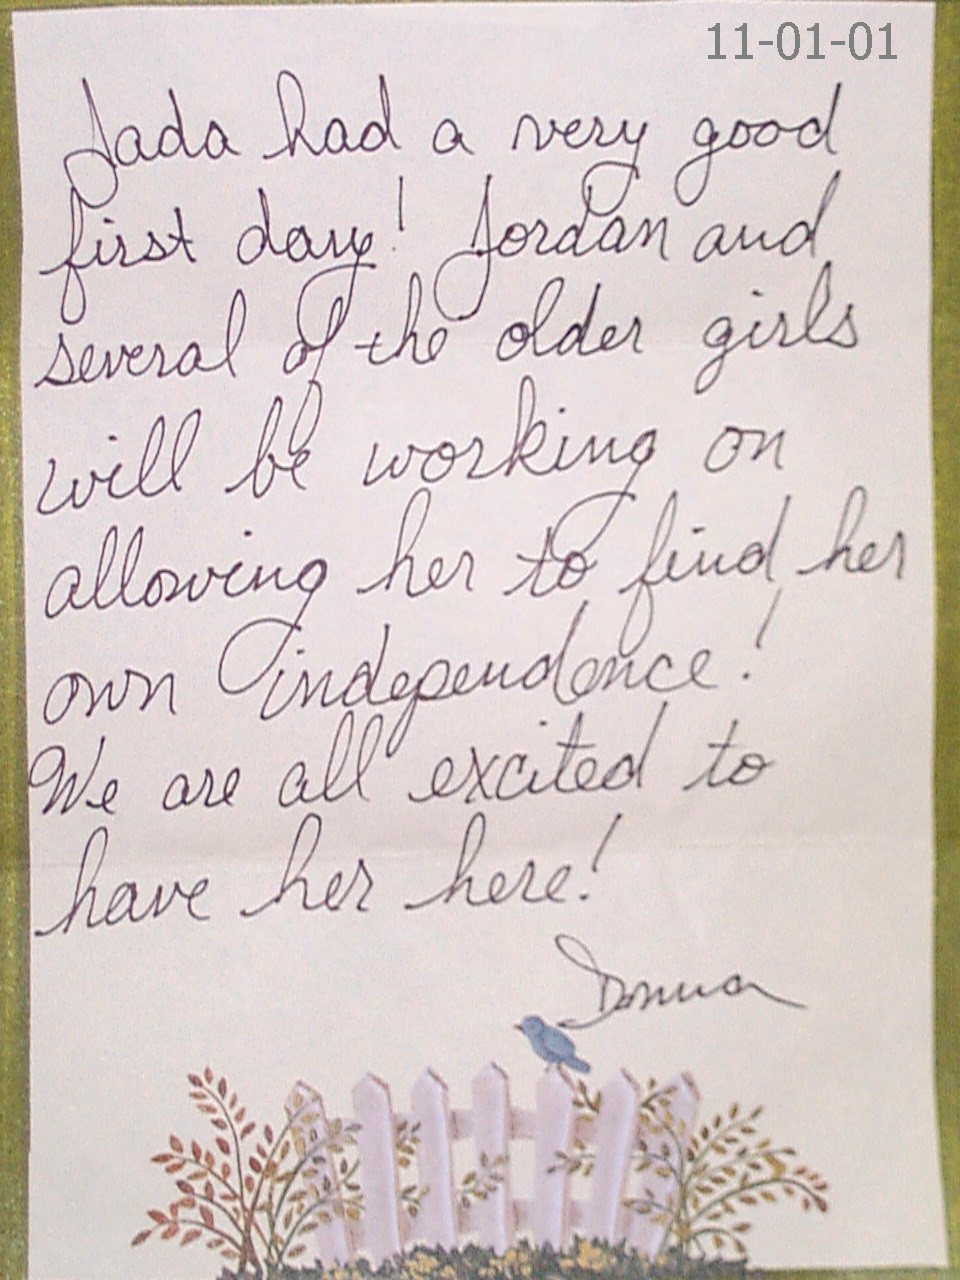 11-01-01
Jada had a very good
first day! Jordan and
several of the older girls
will be working on
allowing her to find her
own independence!
We are all excited to
have her here!
Donna